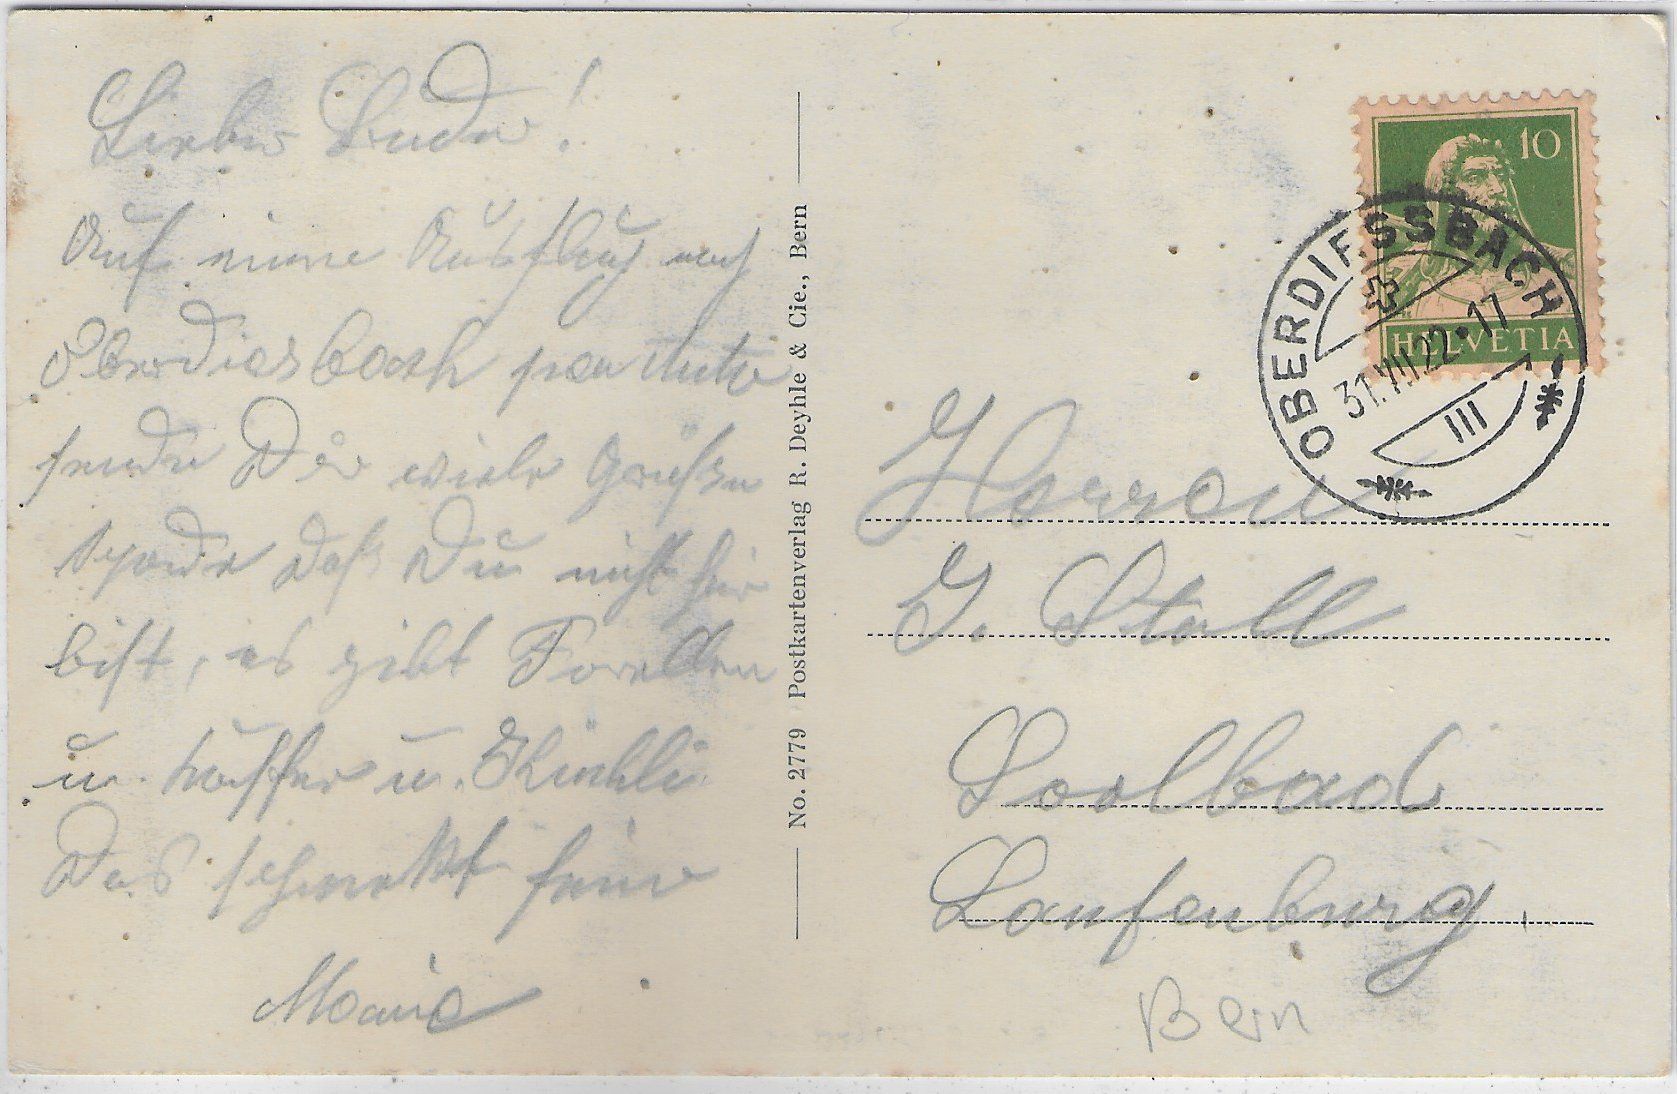 Lieber Bruder!
Auf einem Ausflug nach
Oberdiesbach per Auto
sende Dir viele Grüße
schade daß Du nicht hier
bist, es gibt Forellen
u. u. Küchli
Das schmekt fein
Marie
No. 2779 Postkartenverlag R. Deyhle & Cie., Bern
10
HELVETIA
OBERDIESSBACH
31.VII.22·17
III
Herrn
J. Stoll
Soolbad
Laufenburg.
Bern